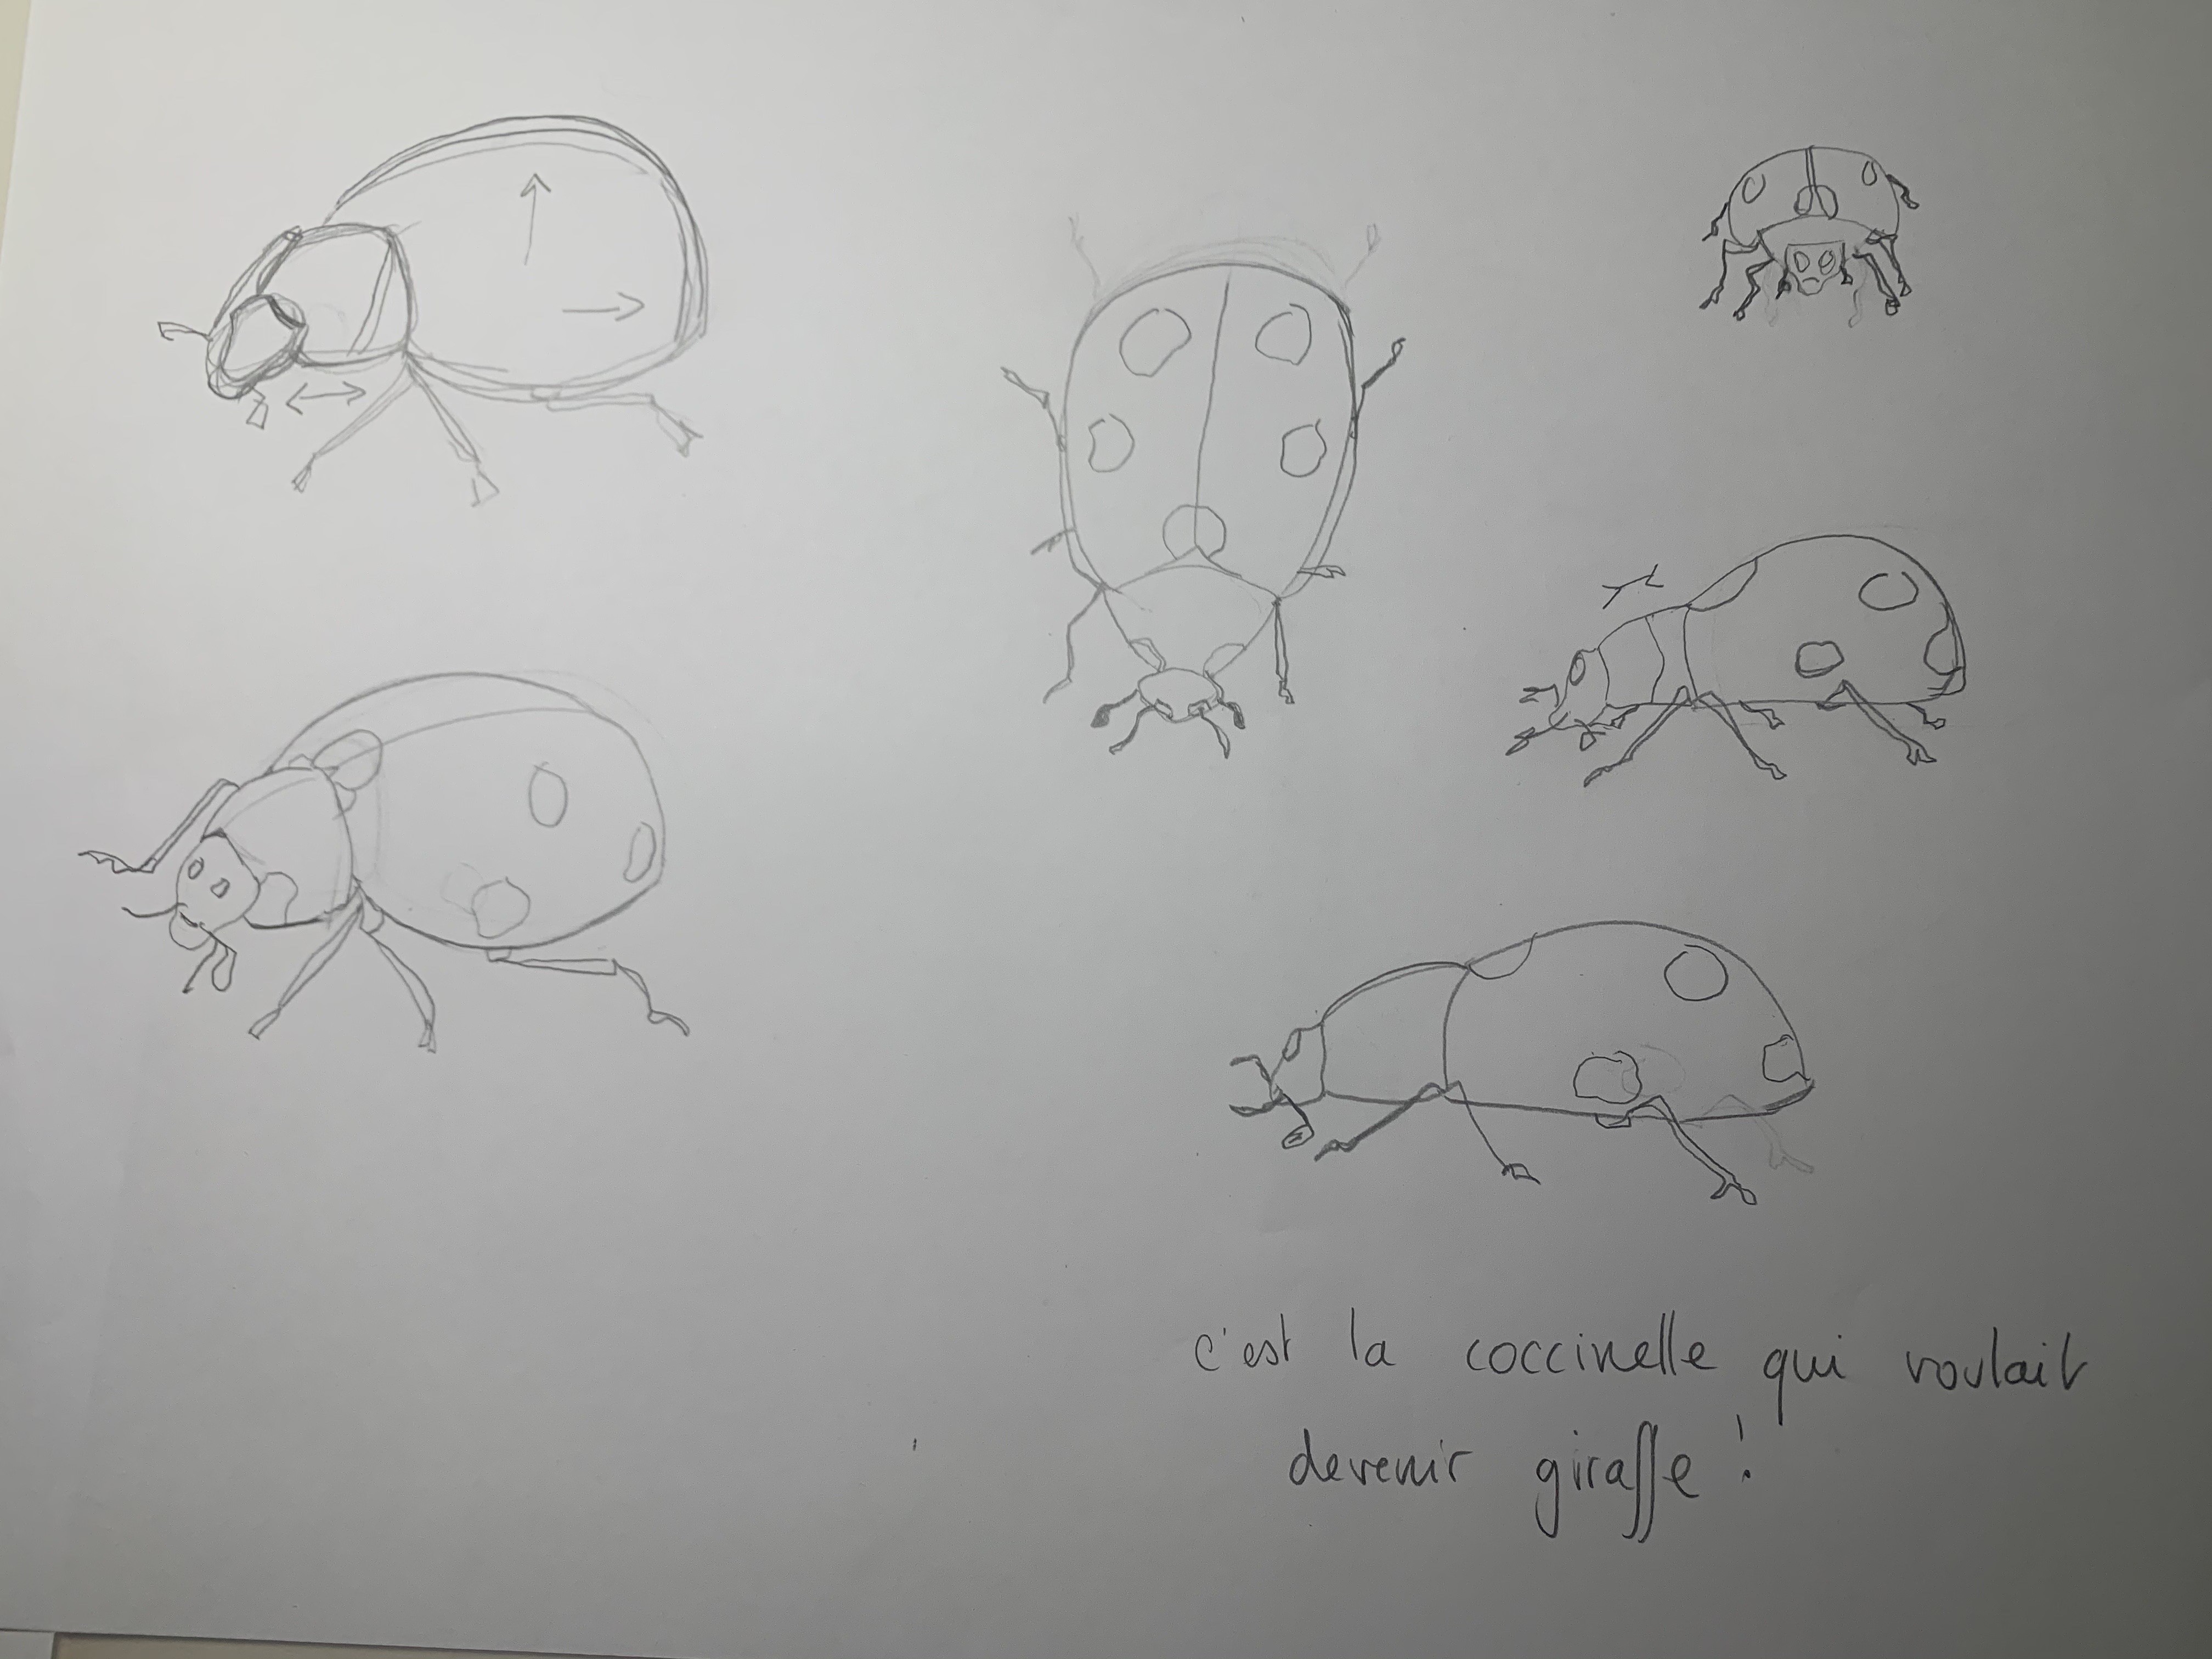 c'est la coccinelle qui voulait
devenir giraffe !